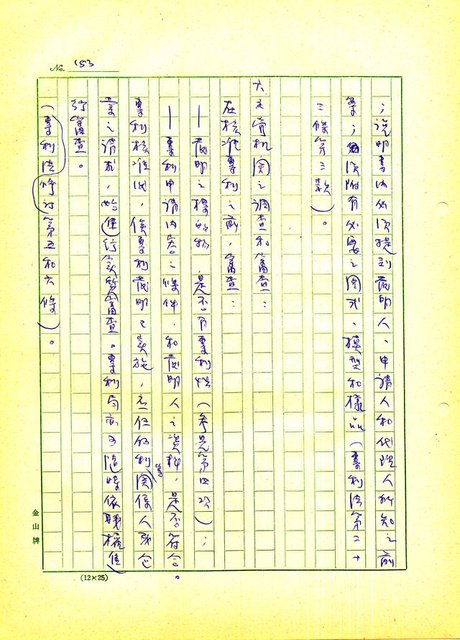 No. 153
；說明書內必須提到發明人、申請人和代理人所知之前
案；必須附有必要之圖式、模型和樣品（專利法第二十
三條第三款）。
六主管机関之調查和審查：
在核准專利之前，審查：
—發明之標的物，是否有專利性（參見第四項）；
—專利申請內容之條件，和發明人之資料，是否符合。
專利核准後，俟專利發明已實施，無任何利害関係人所
之請求，始行實質審查。專利局亦可隨時依職權進
行審查。
（專利法修訂第五和六條）。
金山牌
(12×25)